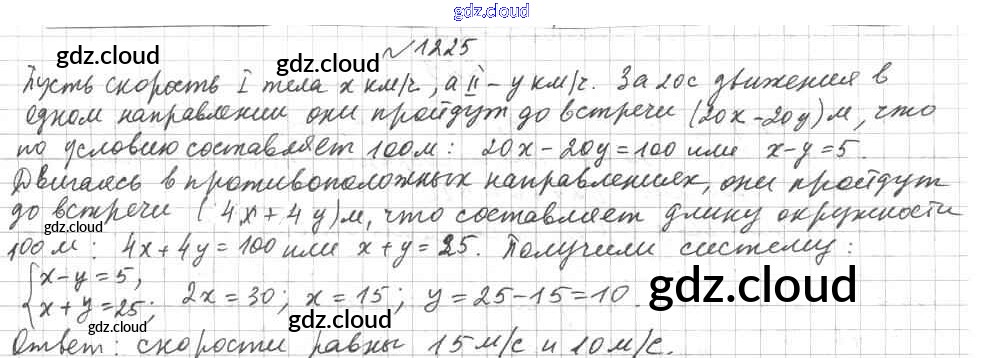 gdz.cloud
№ 1225
gdz.cloud
gdz.cloud
Пусть скорость I тела x км/ч, а II – y км/ч. За 20с движения в
одном направлении они пройдут до встречи (20x-20y)м, что
по условию составляет 100м: 20x-20y=100 или x-y=5.
Двигаясь в противоположных направлениях, они пройдут
до встречи (4x+4y)м, что составляет длину окружности
100м: 4x+4y=100 или x+y=25. Получили систему:
{x-y=5,
x+y=25; 2x=30; x=15; y=25-15=10.
gdz.cloud
gdz.cloud
gdz.cloud
Ответ: скорости равны 15м/с и 10м/с.